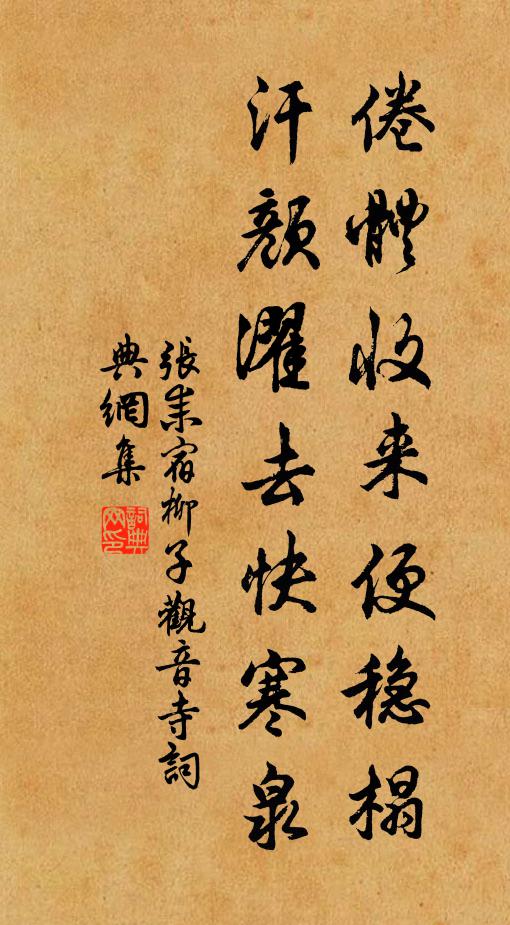 倦體收来便稳榻
汗颜濯去快寒泉
張耒宿柳子觀音寺詞
典網集
詞典